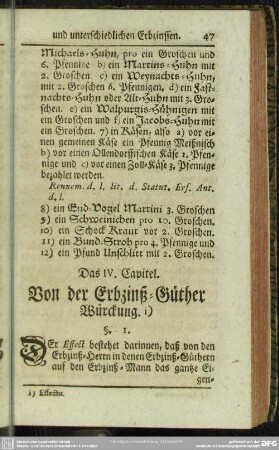 und unterschiedlichen Erbzinssen. 47
Michaels-Huhn, pro ein Groschen und
6. Pfennige b) ein Martins-Huhn mit
2. Groschen. c) ein Weynachts-Huhn,
mit 2. Groschen 6. Pfennigen, d) ein Fast-
nachts-Huhn oder Alt-Huhn mit 3. Gro-
schen. e) ein Walpurgis-Hühnigen mit
ein Groschen und f) ein Jacobs-Huhn mit
ein Groschen. 7) in Käsen, also a) vor ei-
nen gemeinen Käse ein Pfennig Meißnisch
b) vor einen Ollendorffischen Käse 1. Pfen-
nige und c) vor einen Zoll-Käse 3. Pfennige
bezahlet werden.
Rennem. d. l. lit. d. Statut. Erf. Ant.
d. l.
8) ein End-Vogel Martini 3. Groschen
9) ein Schweinichen pro 10. Groschen.
10) ein Schock Kraut vor 2. Groschen.
11) ein Bund-Stroh pro 4. Pfennige und
12) ein Pfund Unschlitt mit 2. Groschen.
Das IV. Capitel.
Von der Erbzinß-Güther
Würckung. i)
§. 1.
Der Effect bestehet darinnen, daß von den
Erbzinß-Herrn in denen Erbzinß-Güthern
auf den Erbzinß-Mann das gantze Ei-
gen-
i) Effectu.